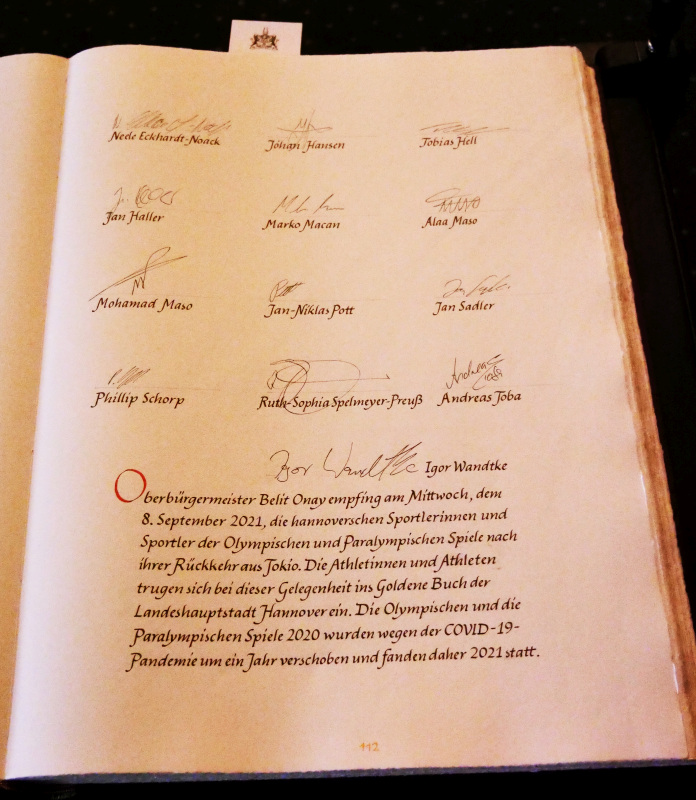 Neele Eckhardt-Noack Johan Hansen Tobias Hell
Jan Haller Marko Macan Alaa Maso
Mohamad Maso Jan-Niklas Pott Jan Sadler
Phillip Schorp Ruth-Sophia Spelmeyer-Preuß Andreas Toba
Igor Wandtke Igor Wandtke
Oberbürgermeister Belit Onay empfing am Mittwoch, dem
8. September 2021, die hannoverschen Sportlerinnen und
Sportler der Olympischen und Paralympischen Spiele nach
ihrer Rückkehr aus Tokio. Die Athletinnen und Athleten
trugen sich bei dieser Gelegenheit ins Goldene Buch der
Landeshauptstadt Hannover ein. Die Olympischen und die
Paralympischen Spiele 2020 wurden wegen der COVID-19-
Pandemie um ein Jahr verschoben und fanden daher 2021 statt.
112